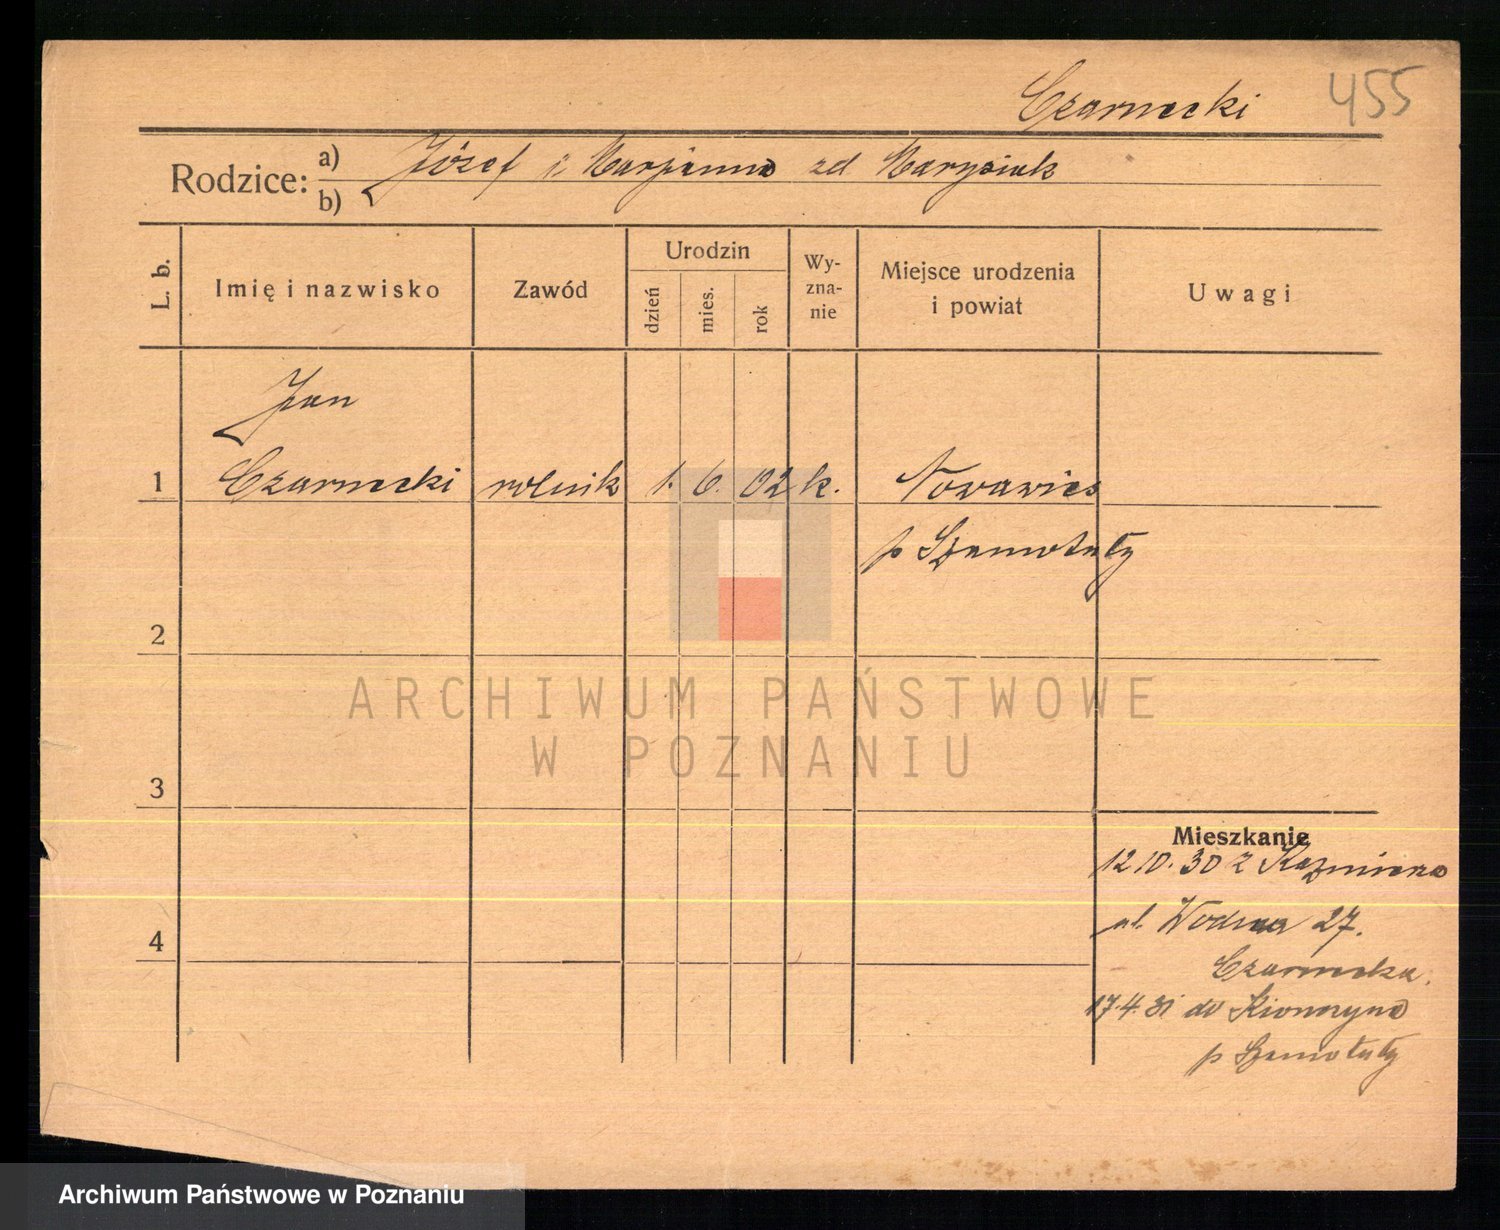 Czarnecki 455
Rodzice:
a) Józef i Marjanna zd Marysiak
b)
L. b.
Imię i nazwisko
Zawód
Urodzin
dzień
mies.
rok
Wy-
zna-
nie
Miejsce urodzenia
i powiat
Uwagi
Jan
1 Czarnecki rolnik 1. 6. 02 k. Nowawieś
p Szamotuły
2
3
4
Mieszkanie
12 10. 30 z Kazmierza
ul. Wodna 27.
Czarnecka.
17.4.31 do
p Szamotuły
ARCHIWUM PAŃSTWOWE
W POZNANIU
Archiwum Państwowe w Poznaniu